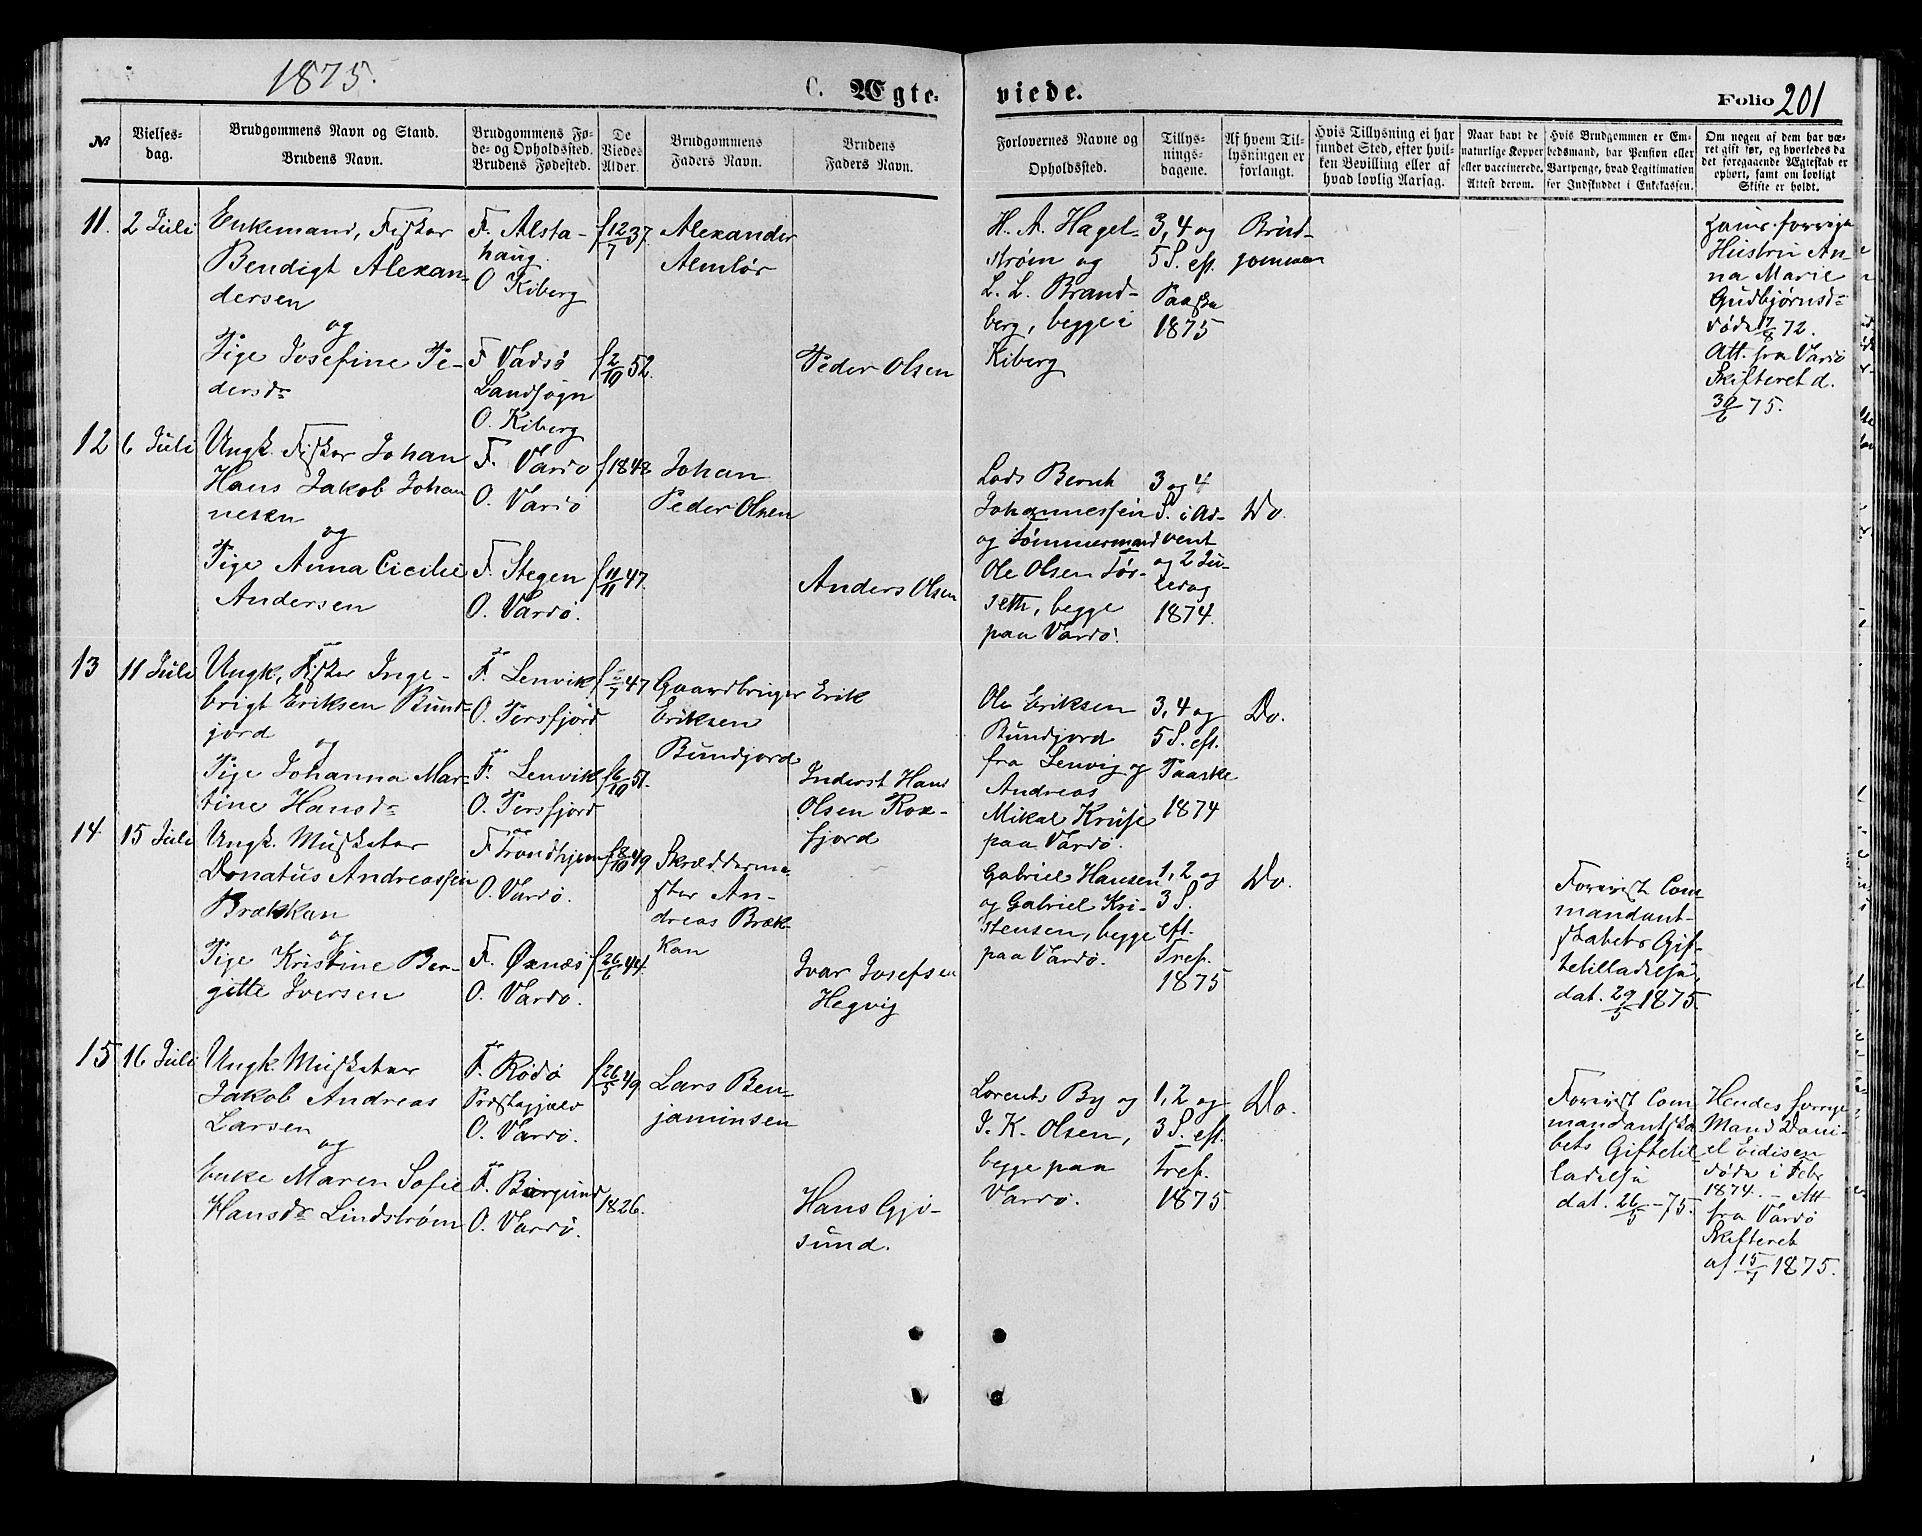 1875.
C. Ægte-
viede.
Folio 201
№
Vielses-
dag.
Brudgommens Navn og Stand.
Brudens Navn.
Brudgommens Fø-
de- og Opholdssted.
Brudens Fødested.
De
Viedes
Alder.
Brudgommens
Faders Navn.
Brudens
Faders Navn.
Forlovernes Navne og
Opholdssted.
Tillys-
nings-
dagene.
Af hvem Til-
lysningen er
forlangt.
Hvis Tillysning ei har
fundet Sted, efter hvil-
ken Bevilling eller af
hvad lovlig Aarsag.
Naar havt de
naturlige Kopper
eller vaccinerede.
Attest derom.
Hvis Brudgommen er Em-
bedsmand, har Pension eller
Vartpenge, hvad Legitimation
for Indskuddet i Enkekassen.
Om nogen af dem har væ-
ret gift før, og hvorledes da
det foregaaende Ægteskab er
ophørt, samt om lovligt
Skifte er holdt.
11.
2 Juli
Enkemand, Fisker
Bendigt Alexan-
dersen
og
Pige Josefine Pe-
dersd
F. Alsta-
haug.
O Kiberg
F Vadsø
Landsogn
O. Kiberg
f 12/7 37
f 2/10 52.
Alexander
Almlör
Peder Olsen
H. A. Hagel-
strøm og
L. L. Brand-
berg, begge i
Kiberg
3, 4 og
5 S. eft.
Paaske
1875
Brud-
gommen
Hans forrige
Hustru An-
na Marie
Gudbjørnsd
døde 17/8 72.
Att. fra Vardø
Skifteret d.
30/6 75.
12
6 Juli
Ungk. Fisker Johan
Hans Jakob Johan
nesen
og
Pige Anna Cicilie
Andersen
F. Vardø
O. Vardø
F. Stegen
O. Vardø.
f 1848
f 11/11 47.
Johan
Peder Olsen
Anders Olsen
Lods Bernt
Johannessen
og Tømmermand
Ole Olsen Tør-
seth, begge
paa Vardø.
3 og 4
S. i Ad-
vent
og 2 Ju-
ledag
1874.
Do.
13
11 Juli
Ungk, Fisker Inge-
brigt Eriksen Bund-
jord
og
Pige Johanna Mar-
tine Hansd
F. Lenvik
O. Persfjord
F. Lenvik
O. Persfjord
47
f 6/10 51.
Gaardbruger Erik
Eriksen
Bundjord
Inderst Hans
Olsen Rox-
fjord
Ole Eriksen
Bundjord
fra Lenvig og
Andreas
Mikal Kruse
paa Vardø.
3, 4 og
5 S. eft.
Paaske
1874
Do.
14
15 Juli
Ungk. Musketer
Donatus Andreassen
Brækkan
og
Pige Kristine Ber-
gitte Iversen
F Trondhjem
O. Vardø.
F. Øxnæs
O. Vardø.
f 8/10 49
f 26/6 44.
Skrædderme-
ster An-
dreas Bræk-
kan
Ivar Josefsen
Hegvig
Gabriel Hansen
og Gabriel Kri-
stensen, begge
paa Vardø.
1, 2 og
3 S.
eft.
Tref.
1875
Do.
Forevist Com
mandant-
skabets Gif-
tetilladelse,
dat. 29/5 1875.
15
16 Juli
Ungk. Musketer
Jakob Andreas
Larsen
og
Enke Maren Sofie
Hansd Lindstrøm
F. Rødø
Præstegjeld
O. Vardø.
F. Borgund
O. Vardø.
f 26/5 49
1826.
Lars Ben-
jaminsen
Hans Gjö-
sund.
Lorents By og
J. K. Olsen,
begge paa
Vardø.
1, 2 og
3 S. eft.
Tref.
1875.
Do.
Forevist Com
mandantska
bets Giftetil
ladelse
dat. 26/5 - 75.
Hendes forrige
Mand Dani-
el Eidisen
døde i Febr
1874. - Att
fra Vardø
Skifteret
af 15/7 1875.